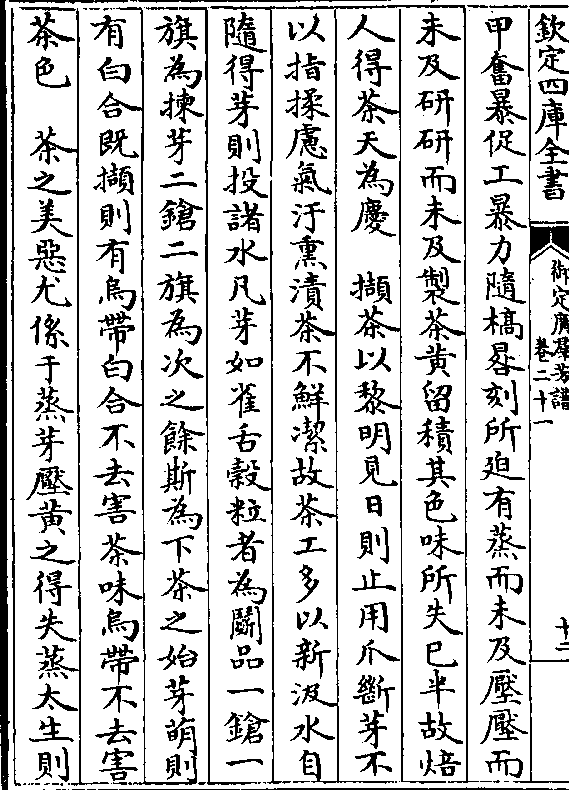 欽定四庫全書
御定廣群芳譜
卷二十一
十二
甲奮暴促工暴力隨槁晷刻所廹有蒸而未及壓壓而
未及研研而未及製茶黄留積其色味所失已半故焙
人得茶天為慶　擷茶以黎明見日則止用爪斷芽不
以指揉慮氣汙熏漬茶不鮮潔故茶工多以新汲水自
隨得芽則投諸水凡芽如雀舌榖粒者為鬭品一鎗一
旗為揀芽二鎗二旗為次之餘斯為下茶之始芽萌則
有白合既擷則有烏帶白合不去害茶味烏帶不去害
茶色　茶之美惡尤係于蒸芽壓黄之得失蒸太生則